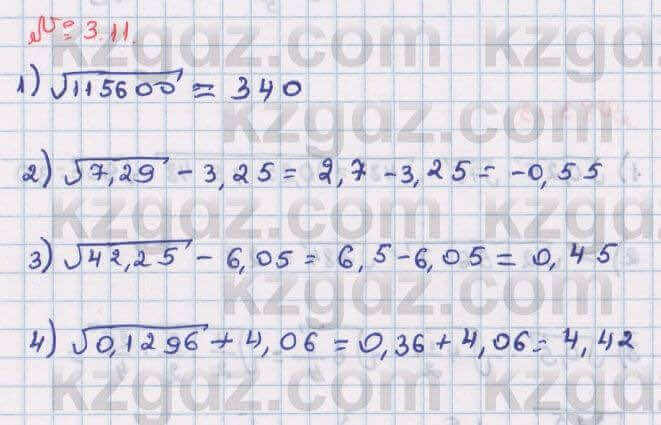 № 3.11.
1) √115600 = 340
2) √7,29 - 3,25 = 2,7 - 3,25 = -0,55
3) √42,25 - 6,05 = 6,5 - 6,05 = 0,45
4) √0,1296 + 4,06 = 0,36 + 4,06 = 4,42
kzgdz.com kzgdz.com
kzgdz.com
kzgdz.com kzgdz.com
kzgdz.com
kzgdz.com kzgdz.com